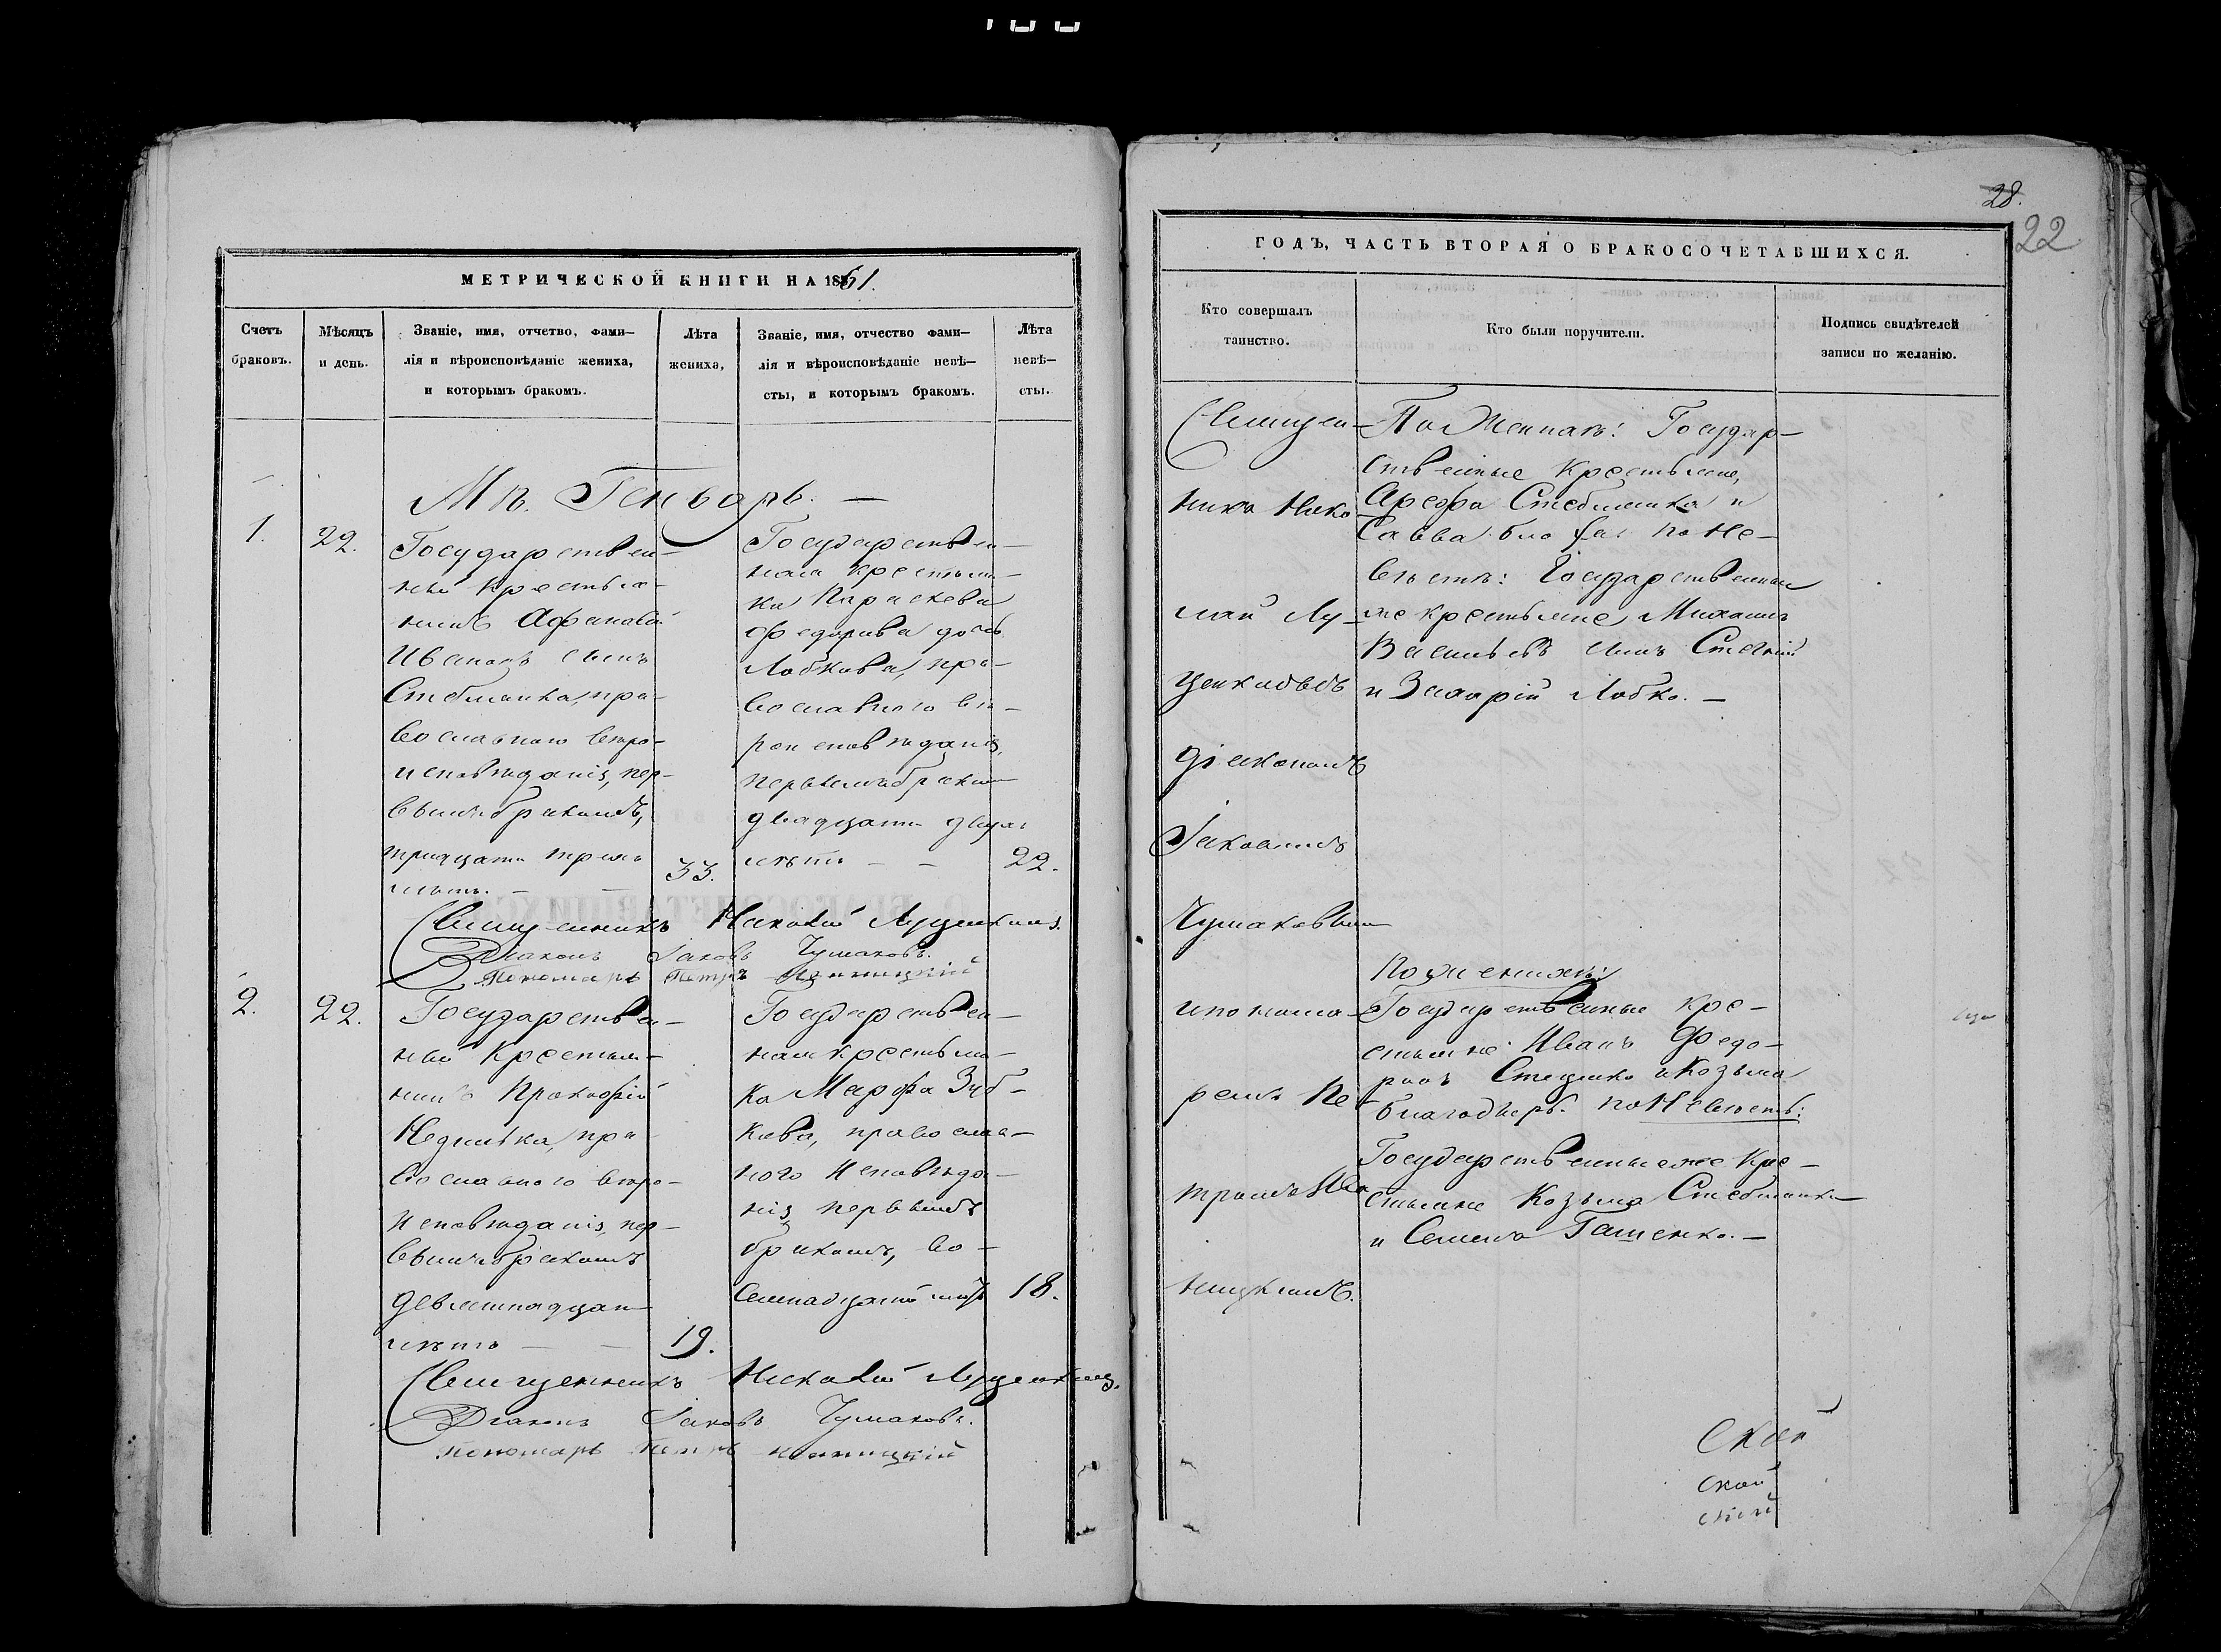 28.
22
МЕТРИЧЕСКОЙ КНИГИ НА 1861.
Счетъ браковъ.
Мѣсяцъ и день.
Званіе, имя, отчетво, фами–
лія и вѣроисповѣданіе жениха,
и которымъ бракомъ.
Лѣта
жениха,
Званіе, имя, отчество фами–
лія и вѣроисповѣданіе невѣ–
сты, и которымъ бракомъ.
Лѣта
невѣ–
сты.
Мц. Генварь. —
1.
22.
Государствен–
ный крестья–
нинъ Афанасій
Ивановъ сынъ
Стебливка, пра–
вославнаго веро–
исповѣданія, пер–
вымъ бракомъ,
тридцати трехъ
лѣтъ. — —
33.
Государствен–
ная крестьян–
ка Параскева
Федорова дочь
Лобкова, пра–
вославнаго вѣ–
роисповѣданія,
первымъ бракомъ
двадцати двухъ
лѣтъ — —
22.
Священникъ Николай Луценковъ.
Діаконъ Іаковъ Чумаковъ.
Пономарь Петръ
2.
22.
Государствен–
ный Крестьян–
нинъ Прокофій
Недилька, пра–
вославнаго веро–
исповѣданія, пер–
вымъ бракомъ
девятнадцати
лѣтъ — —
19.
Государствен–
ная крестьян–
ка Марфа Зуб–
кова, православ–
ного исповѣда–
нія первымъ
бракомъ, во–
семнадцати лѣтъ
18.
Священникъ Николай Луценковъ.
Діаконъ Іаковъ Чумаковъ.
Пономарь Петръ
ГОДЪ, ЧАСТЬ ВТОРАЯ О БРАКОСОЧЕТАВШИХСЯ.
Кто совершалъ
таинство.
Кто были поручители.
Подпись свидѣтелей
записи по желанію.
Священ–
никъ Нико
лай Лу–
ценковъ съ
діакономъ
Іаковомъ
Чумаковым
и понама–
ремъ Пе
тромъ
ницкимъ.
По Женихъ: Государ–
ственные Крестьяне,
Арефа Стебливка и
Савва по Не–
вестѣ: Государственные
же крестьяне, Михаилъ
Васильевъ сынъ
и Захарій Лобко. —
По Женихъ:
Государственные кре–
стьяне Иванъ Федо–
ровъ Стеценко и Козьма
по Невестѣ:
Государственные же Кре–
стьяне Козьма Стебливка
и Семенъ Гашенко. —
ской
ской
ской